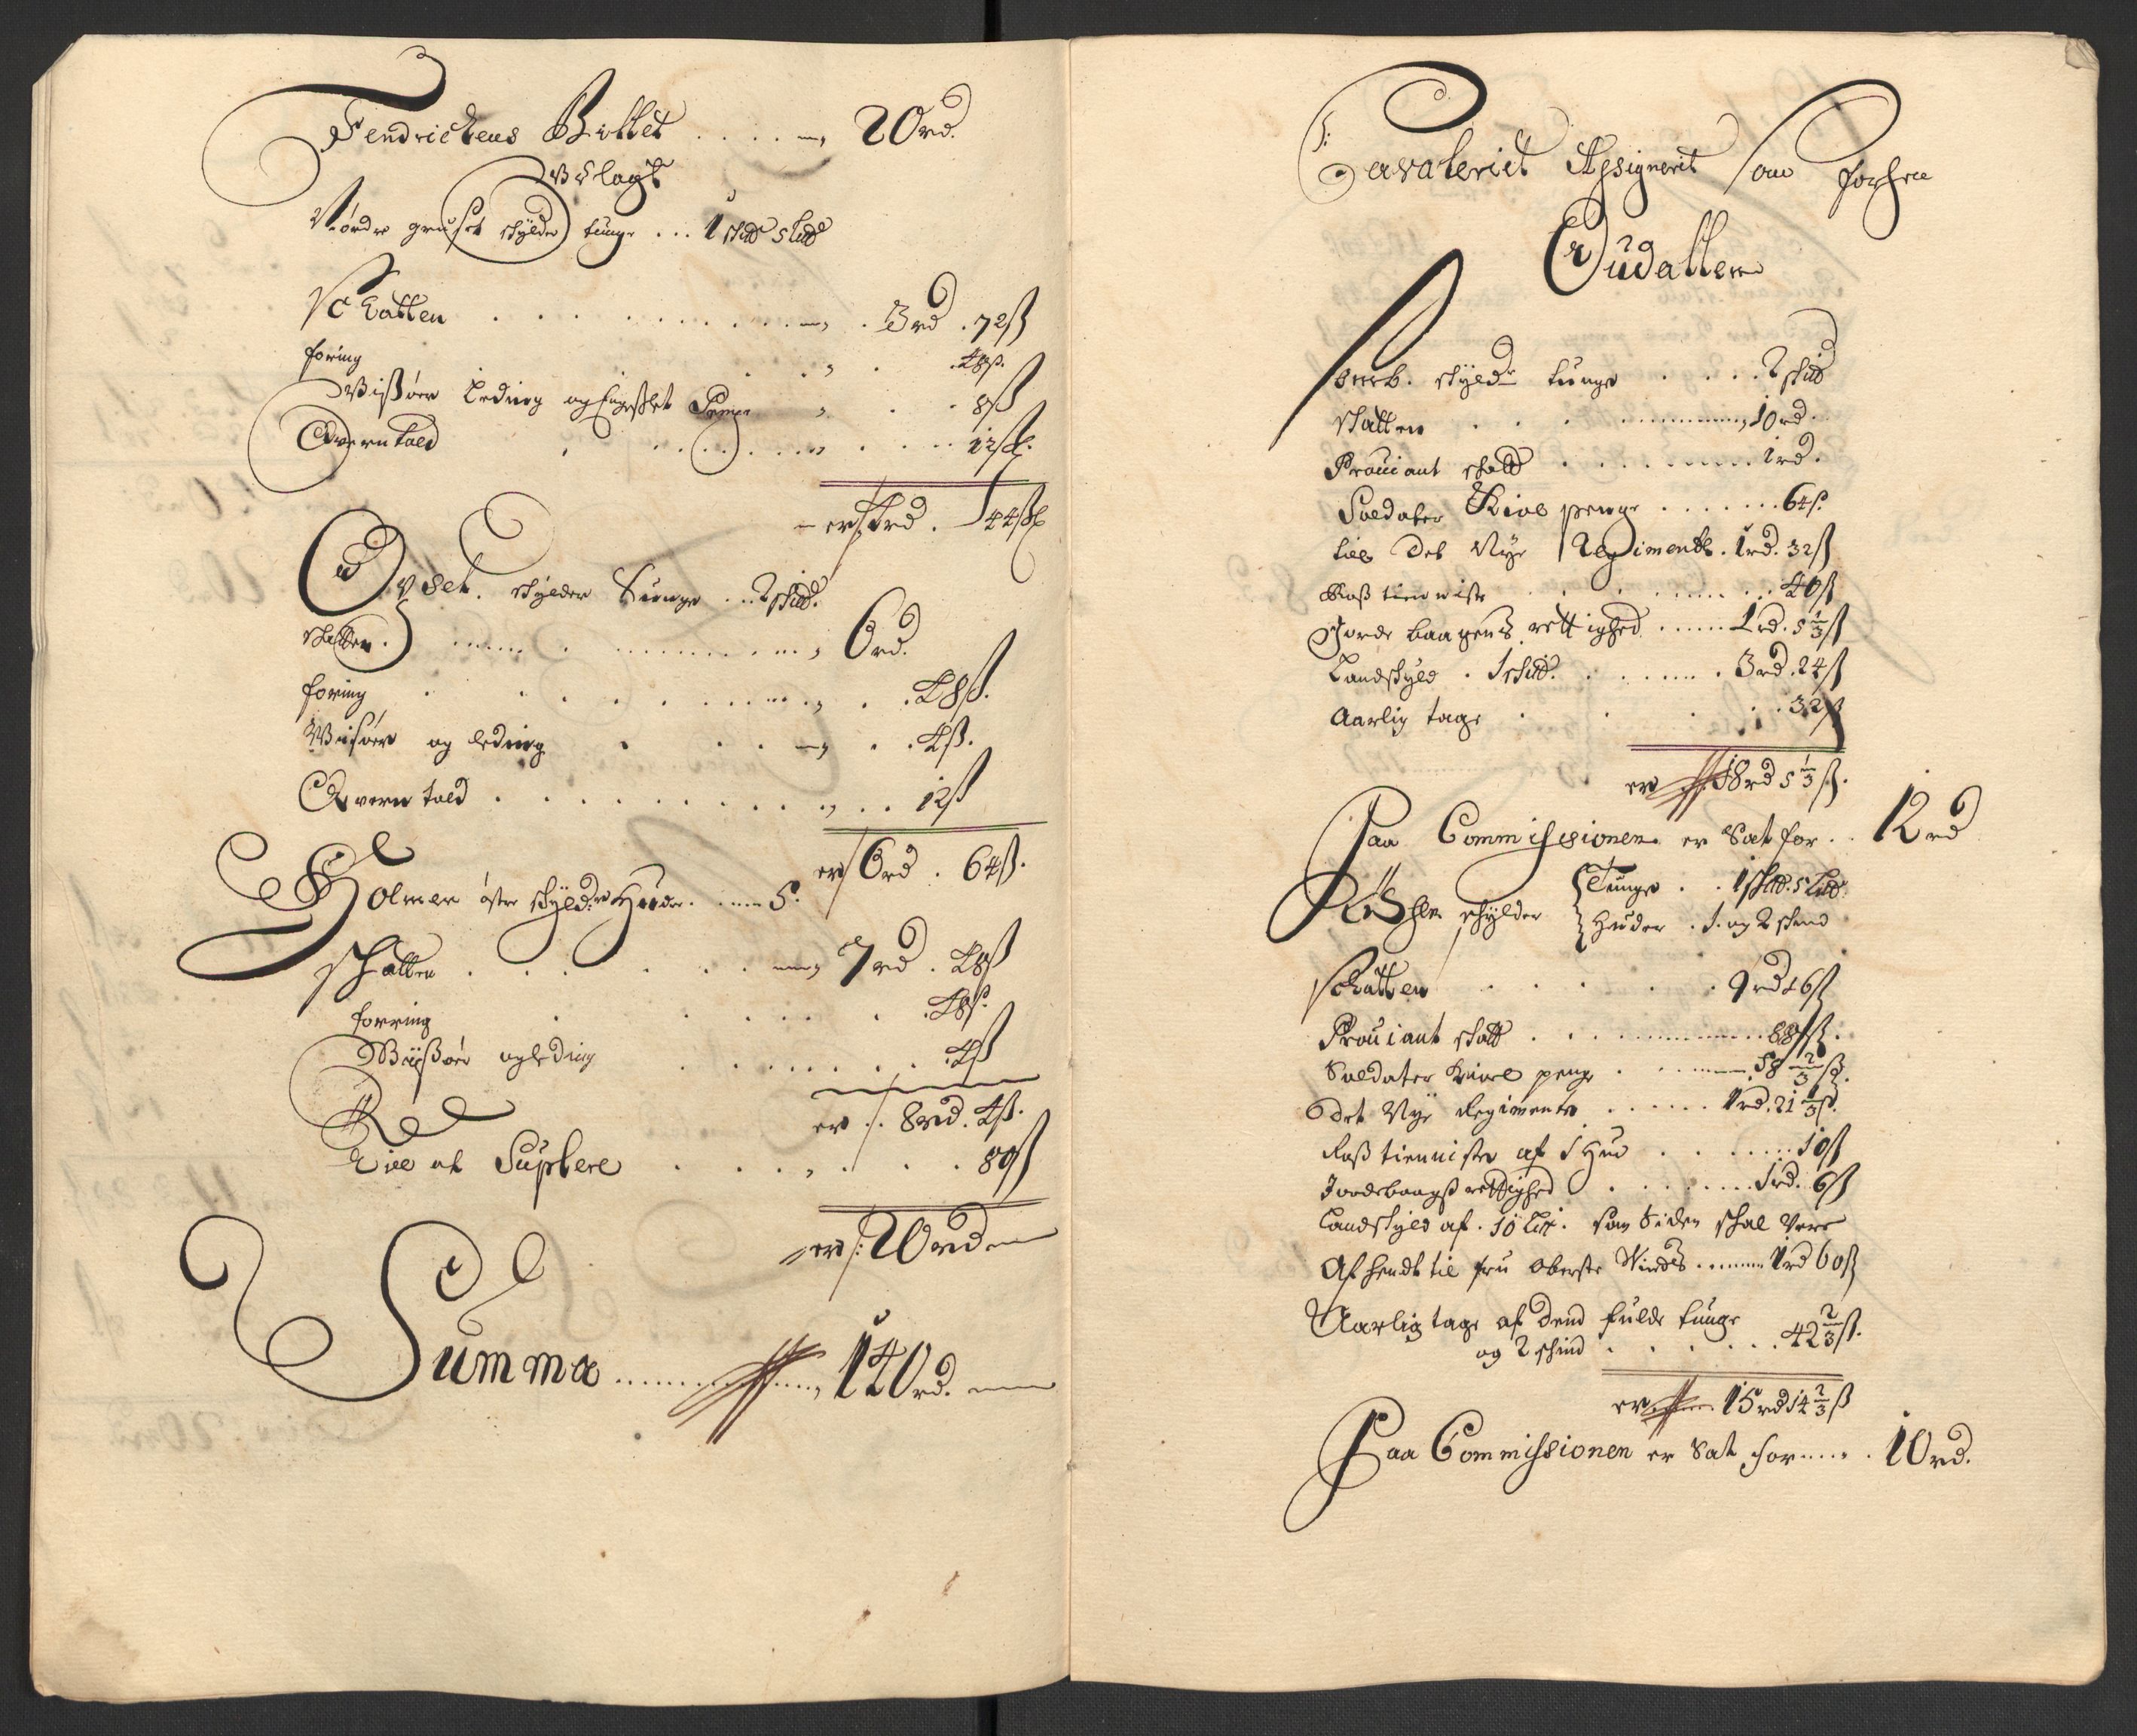 Fendrichens Qvartteer .... 20 rd.
Udlagt
Nordre grufset skylder tunge ... 1 sk℔ 5 L℔
Schatten . . . 3 rd. 72 ß
foring . . . 48 ß.
Wißøer Leding og
8 ß
Qværntold . . . 12 ß.
er 4 rd. 44 ß
skylder Tunge .. 2 sk℔.
skatten . . . 6 rd.
foring . . . 48 ß.
Wisøer og leding . . . 4 ß.
Qværn told . . . 12 ß
er 6 rd. 64 ß.
Holmen østre skylder Huder .... 5.
schatten . . . 7 rd. 48 ß
forring . . . 48 ß.
Wißøer og leding . . . 4 ß
er /: 8 rd. 4 ß.
Till at Suplere . . . 80 ß
er /: 20 rd
Summa ....... 140 rd.
Cavaleriet Assignerit som forhen
Gudallen
skylder tunge .... 2 sk℔
skatten . . . 10 rd.
Proviant skatt . . . 1 rd.
Soldater Kiol penge . . . 64 ß
till Det Nye Regimente. 1 rd. 32 ß
Roß tienniste . . . 40 ß
Jorde baagens rettighed ..... 1 rd. 5 1/3 ß
Landskyld . 1 sk℔. . . . 3 rd. 24 ß
Aarlig tage . . . 32 ß
er 18 rd 5 1/3 ß.
Paa Commissionen er Sat for .. 12 rd
skylder { Tunge . . 1 sk℔. 5 L℔.
Huder . 1. og 2 skind
Schatten . . . 9 rd 16 ß
Proviant skatt . . . 88 ß.
Soldater Kiol penge . . . 58 2/3 ß.
Det Nye Regimente ...... 1 rd. 21 1/3 ß.
Roß tienniste af 1 Hud . . . 10 ß
Jordebaags rettighed . . . 1 rd. 6 ß
Landskyld af . 10 L℔. som Siden skal Vere
Afhendt til fru Oberste Vinds ...... 1 rd 60 ß
Aarlig tage af Dend fulde tunge
og 2 skind . . . 42 2/3 ß.
er 15 rd 14 2/3 ß
Paa Commissionen er Sat for .... 10 rd.